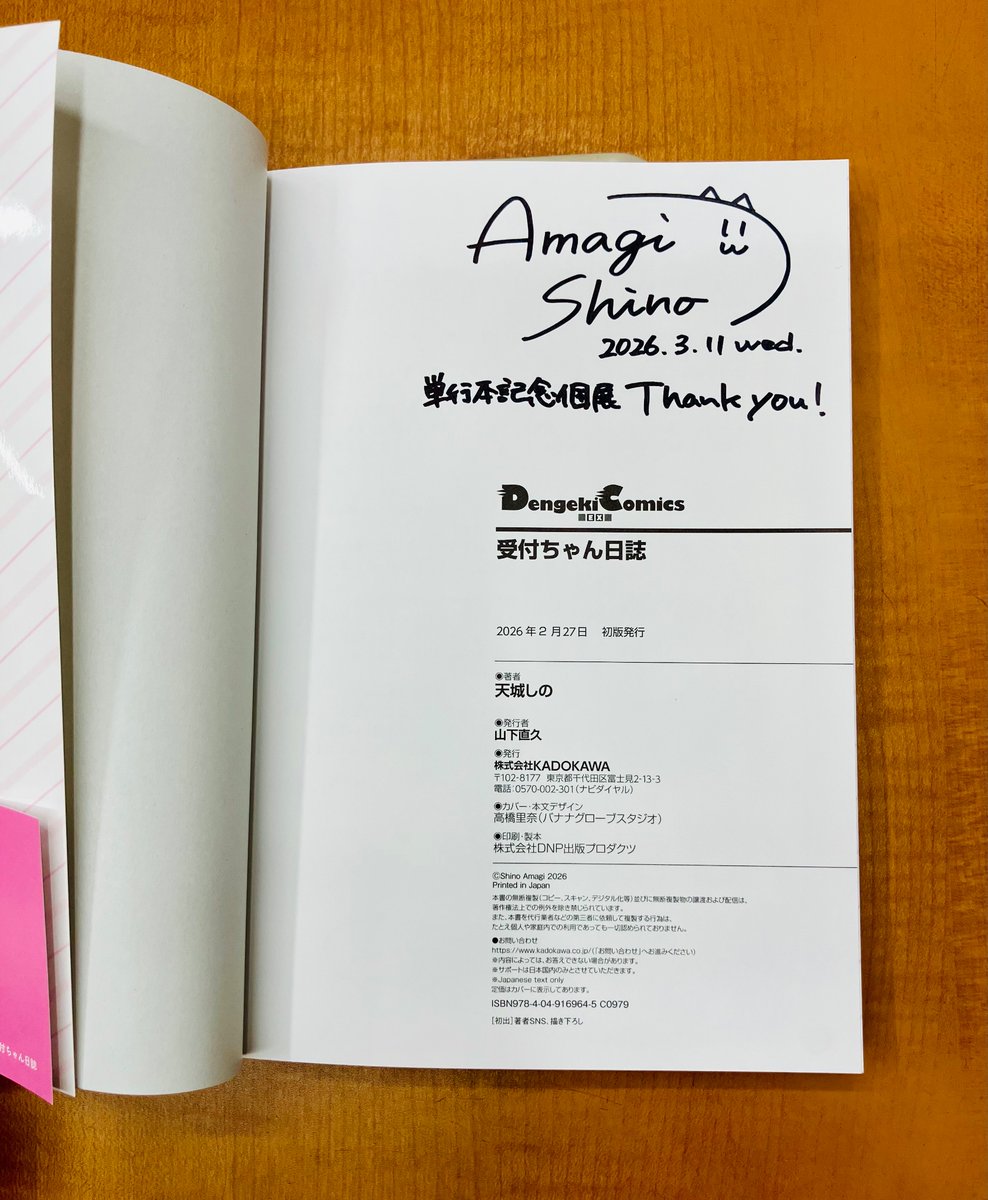 Amagi
Shino
2026.3.11 wed.
単行本記念個展 Thank you!
Dengeki Comics
EX
受付ちゃん日誌
2026年2月27日 初版発行
◉著者
天城しの
◉発行者
山下直久
◉発行
株式会社KADOKAWA
〒102-8177 東京都千代田区富士見2-13-3
電話:0570-002-301(ナビダイヤル)
◉カバー・本文デザイン
高橋里奈(バナナグローブスタジオ)
◉印刷・製本
株式会社DNP出版プロダクツ
©Shino Amagi 2026
Printed in Japan
本書の無断複製(コピー、スキャン、デジタル化等)並びに無断複製物の譲渡および配信は、
著作権法上での例外を除き禁じられています。
また、本書を代行業者などの第三者に依頼して複製する行為は、
たとえ個人や家庭内での利用であっても一切認められておりません。
●お問い合わせ
https://www.kadokawa.co.jp/(「お問い合わせ」へお進みください)
※内容によっては、お答えできない場合があります。
※サポートは日本国内のみとさせていただきます。
※Japanese text only
定価はカバーに表示してあります。
ISBN978-4-04-916964-5 C0979
[初出]著者SNS、描き下ろし
付ちゃん日誌